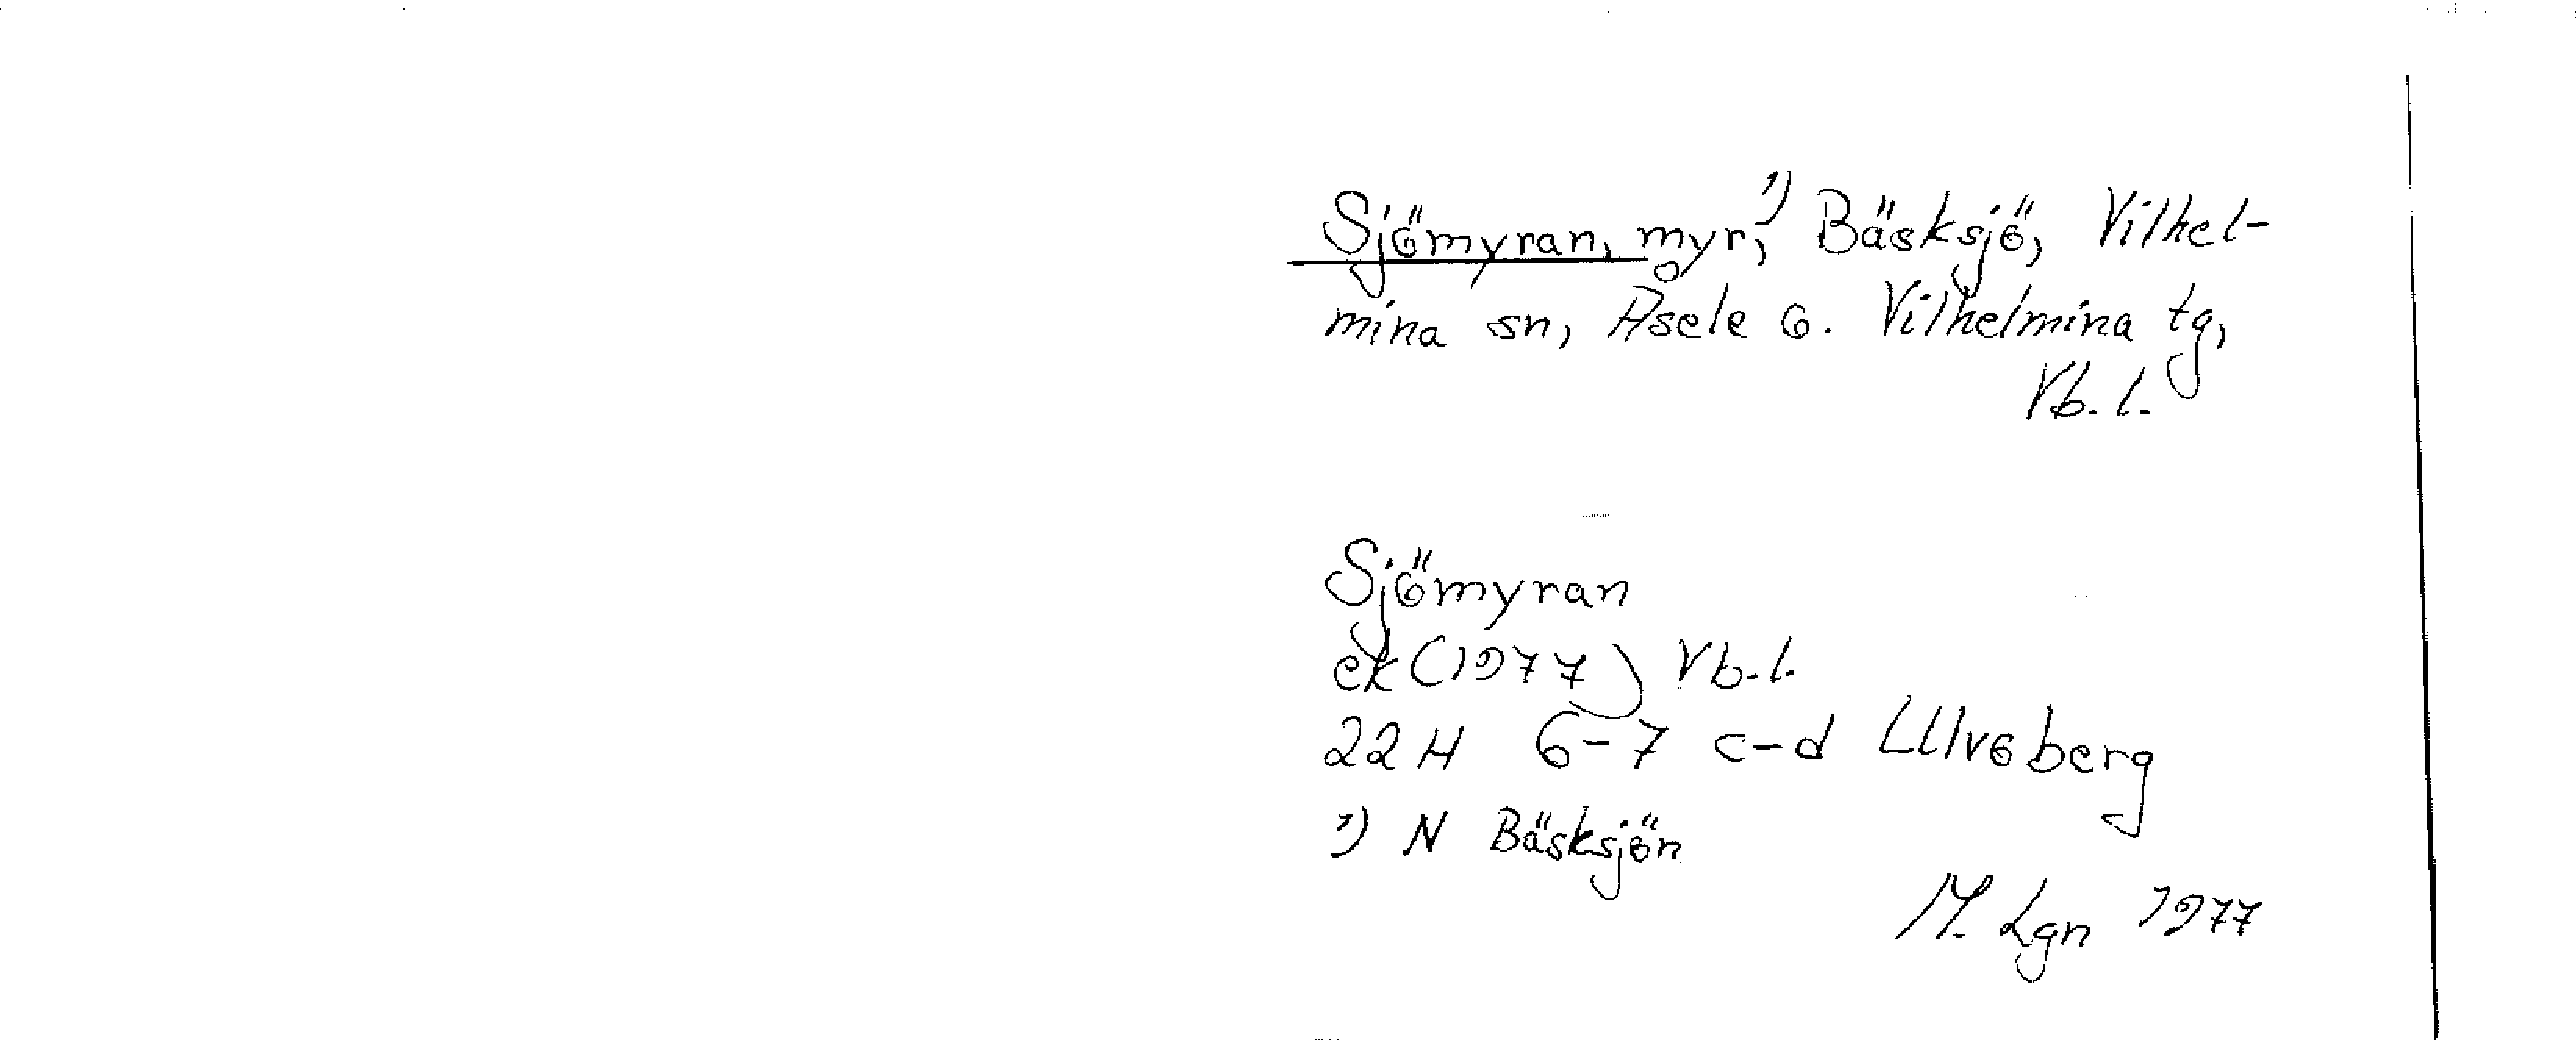 Sjömyran, myr,¹⁾ Bäsksjö, Vilhel-
mina sn, Åsele o. Vilhelmina tg,
Vb. l.
Sjömyran
ek (1977) Vb. l.
22 H 6-7 c-d Ulvoberg
¹⁾ N Bäsksjön
M. Lgn 1977